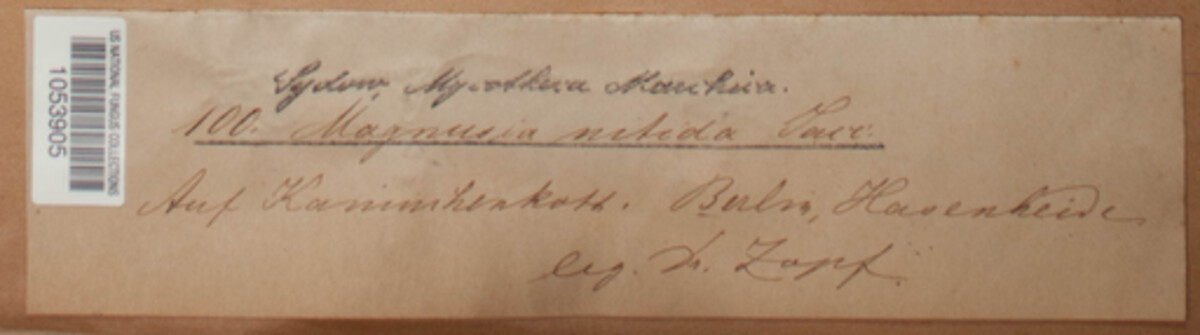 US NATIONAL FUNGUS COLLECTIONS
1053905
Sydow, Mycotheca Marchica.
100. Magnusia nitida Sacc.
Auf Kaninchenkoth. Berlin, Hasenheide
leg. Dr. Zopf.